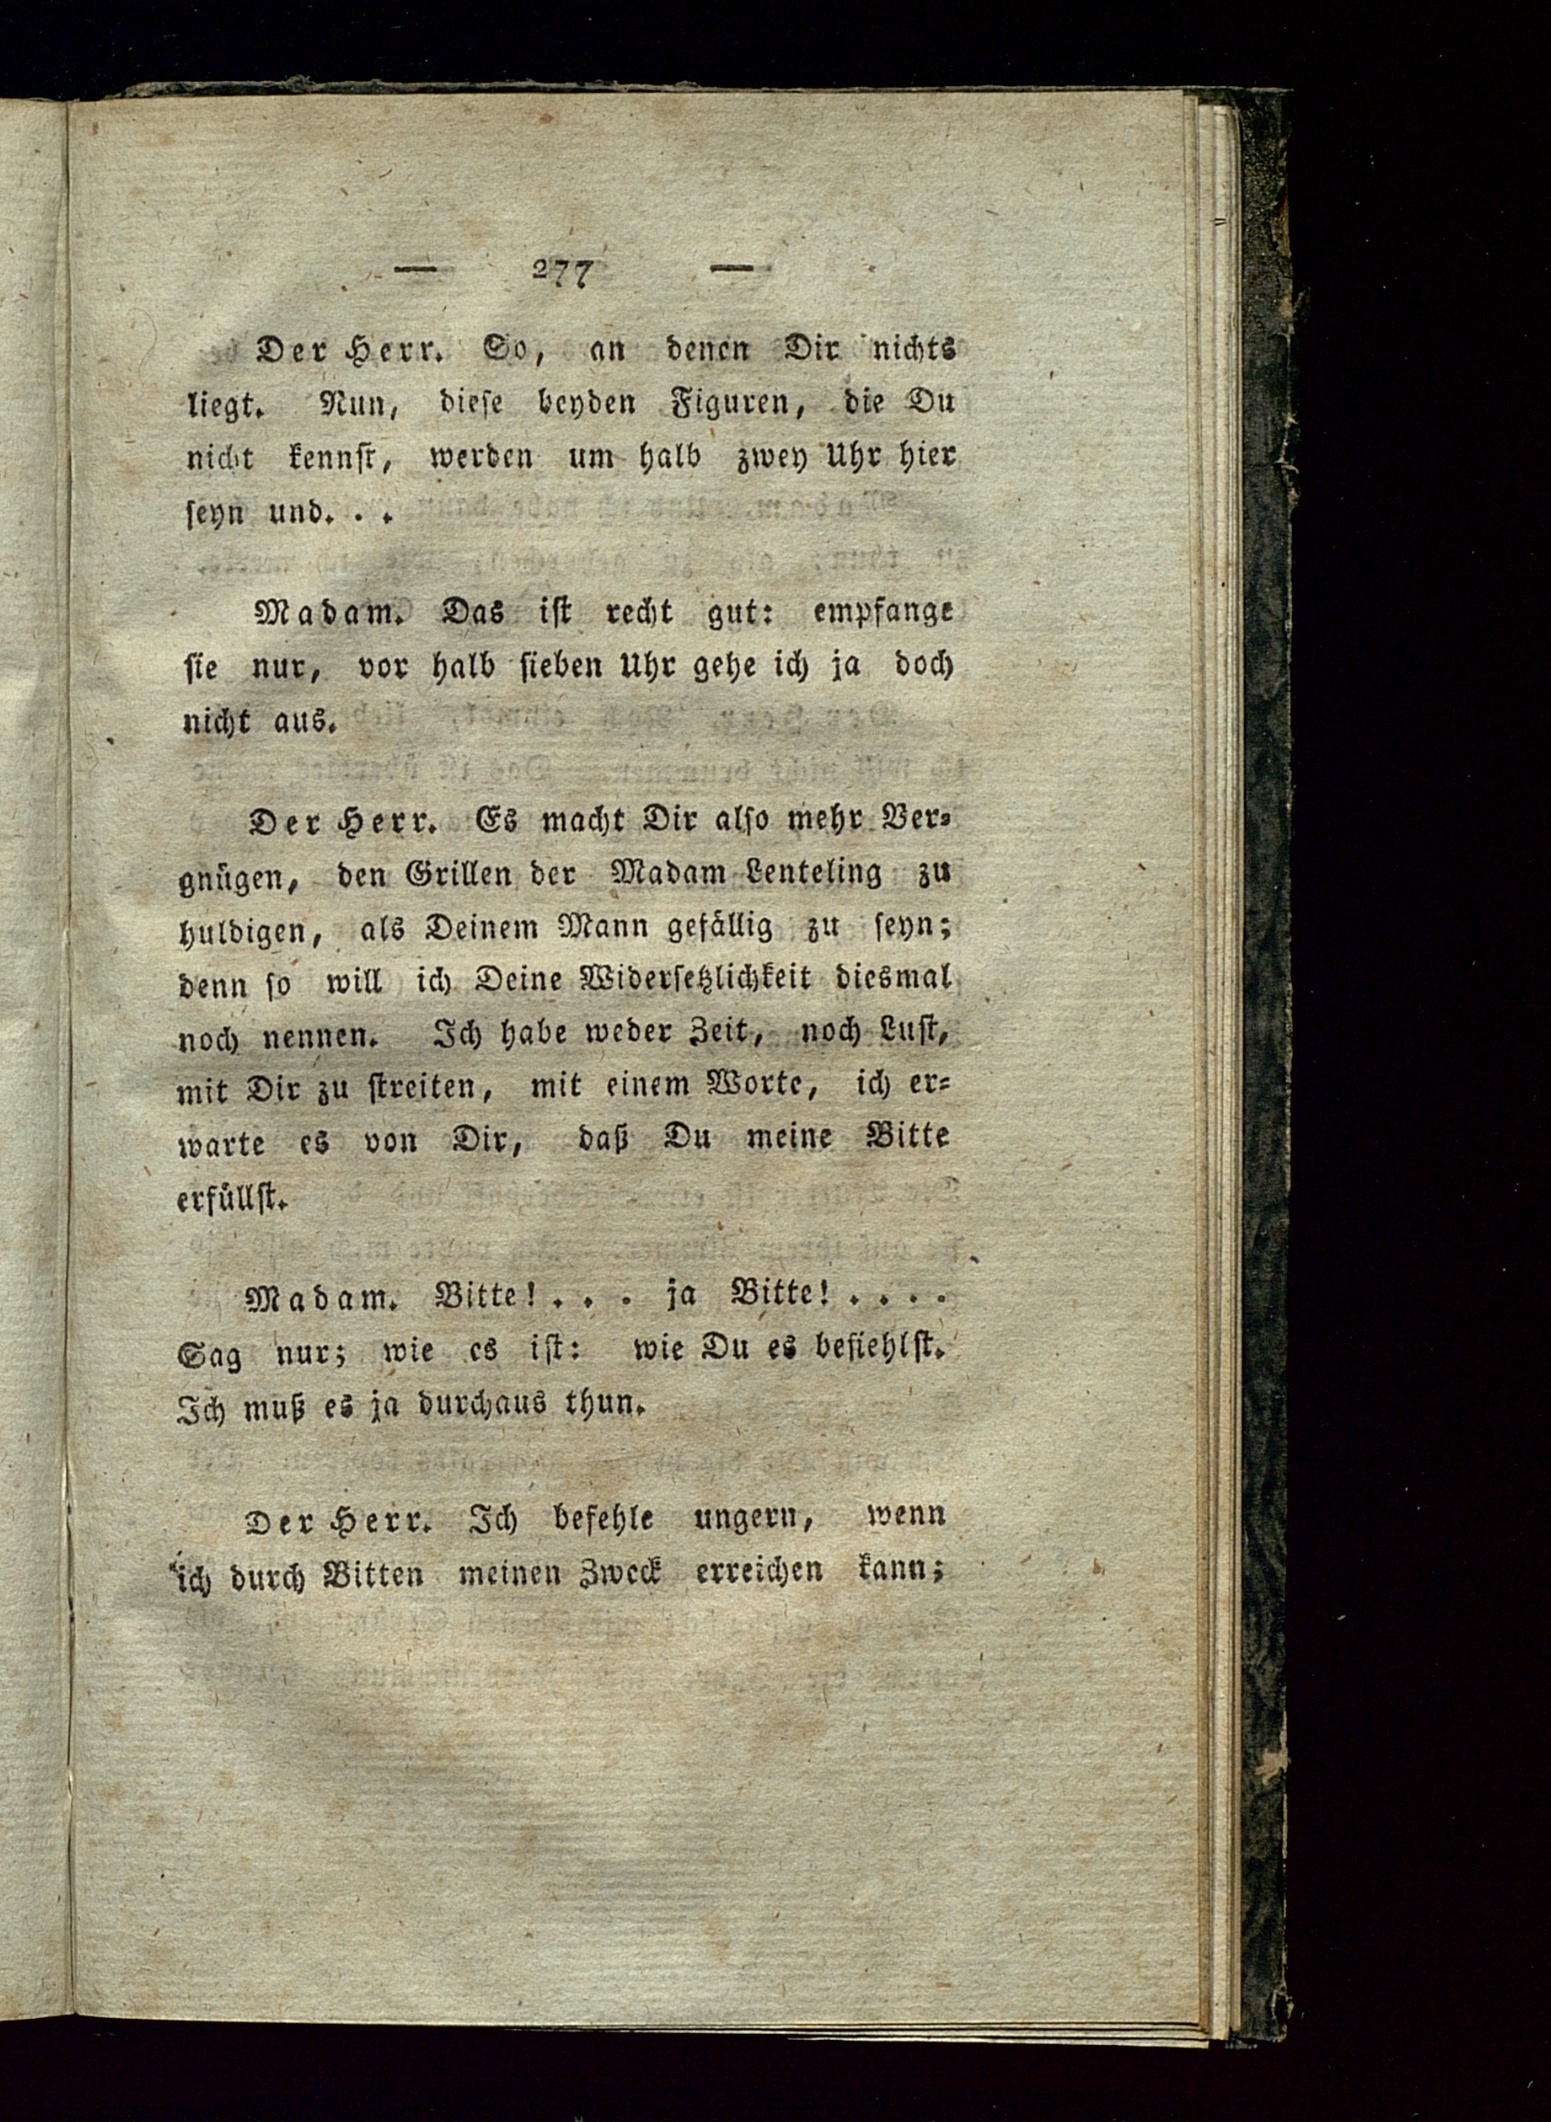 — 277 —
Der Herr. So, an denen Dir nichts
liegt. Nun, diese beyden Figuren, die Du
nicht kennst, werden um halb zwey Uhr hier
seyn und. . .
Madam. Das ist recht gut: empfange
sie nur, vor halb sieben Uhr gehe ich ja doch
nicht aus.
Der Herr. Es macht Dir also mehr Ver-
gnügen, den Grillen der Madam Lenteling zu
huldigen, als Deinem Mann gefällig zu seyn;
denn so will ich Deine Widersetzlichkeit diesmal
noch nennen. Ich habe weder Zeit, noch Lust,
mit Dir zu streiten, mit einem Worte, ich er-
warte es von Dir, daß Du meine Bitte
erfüllst.
Madam. Bitte! . . . ja Bitte! . . . .
Sag nur; wie es ist: wie Du es befiehlst.
Ich muß es ja durchaus thun.
Der Herr. Ich befehle ungern, wenn
ich durch Bitten meinen Zweck erreichen kann;